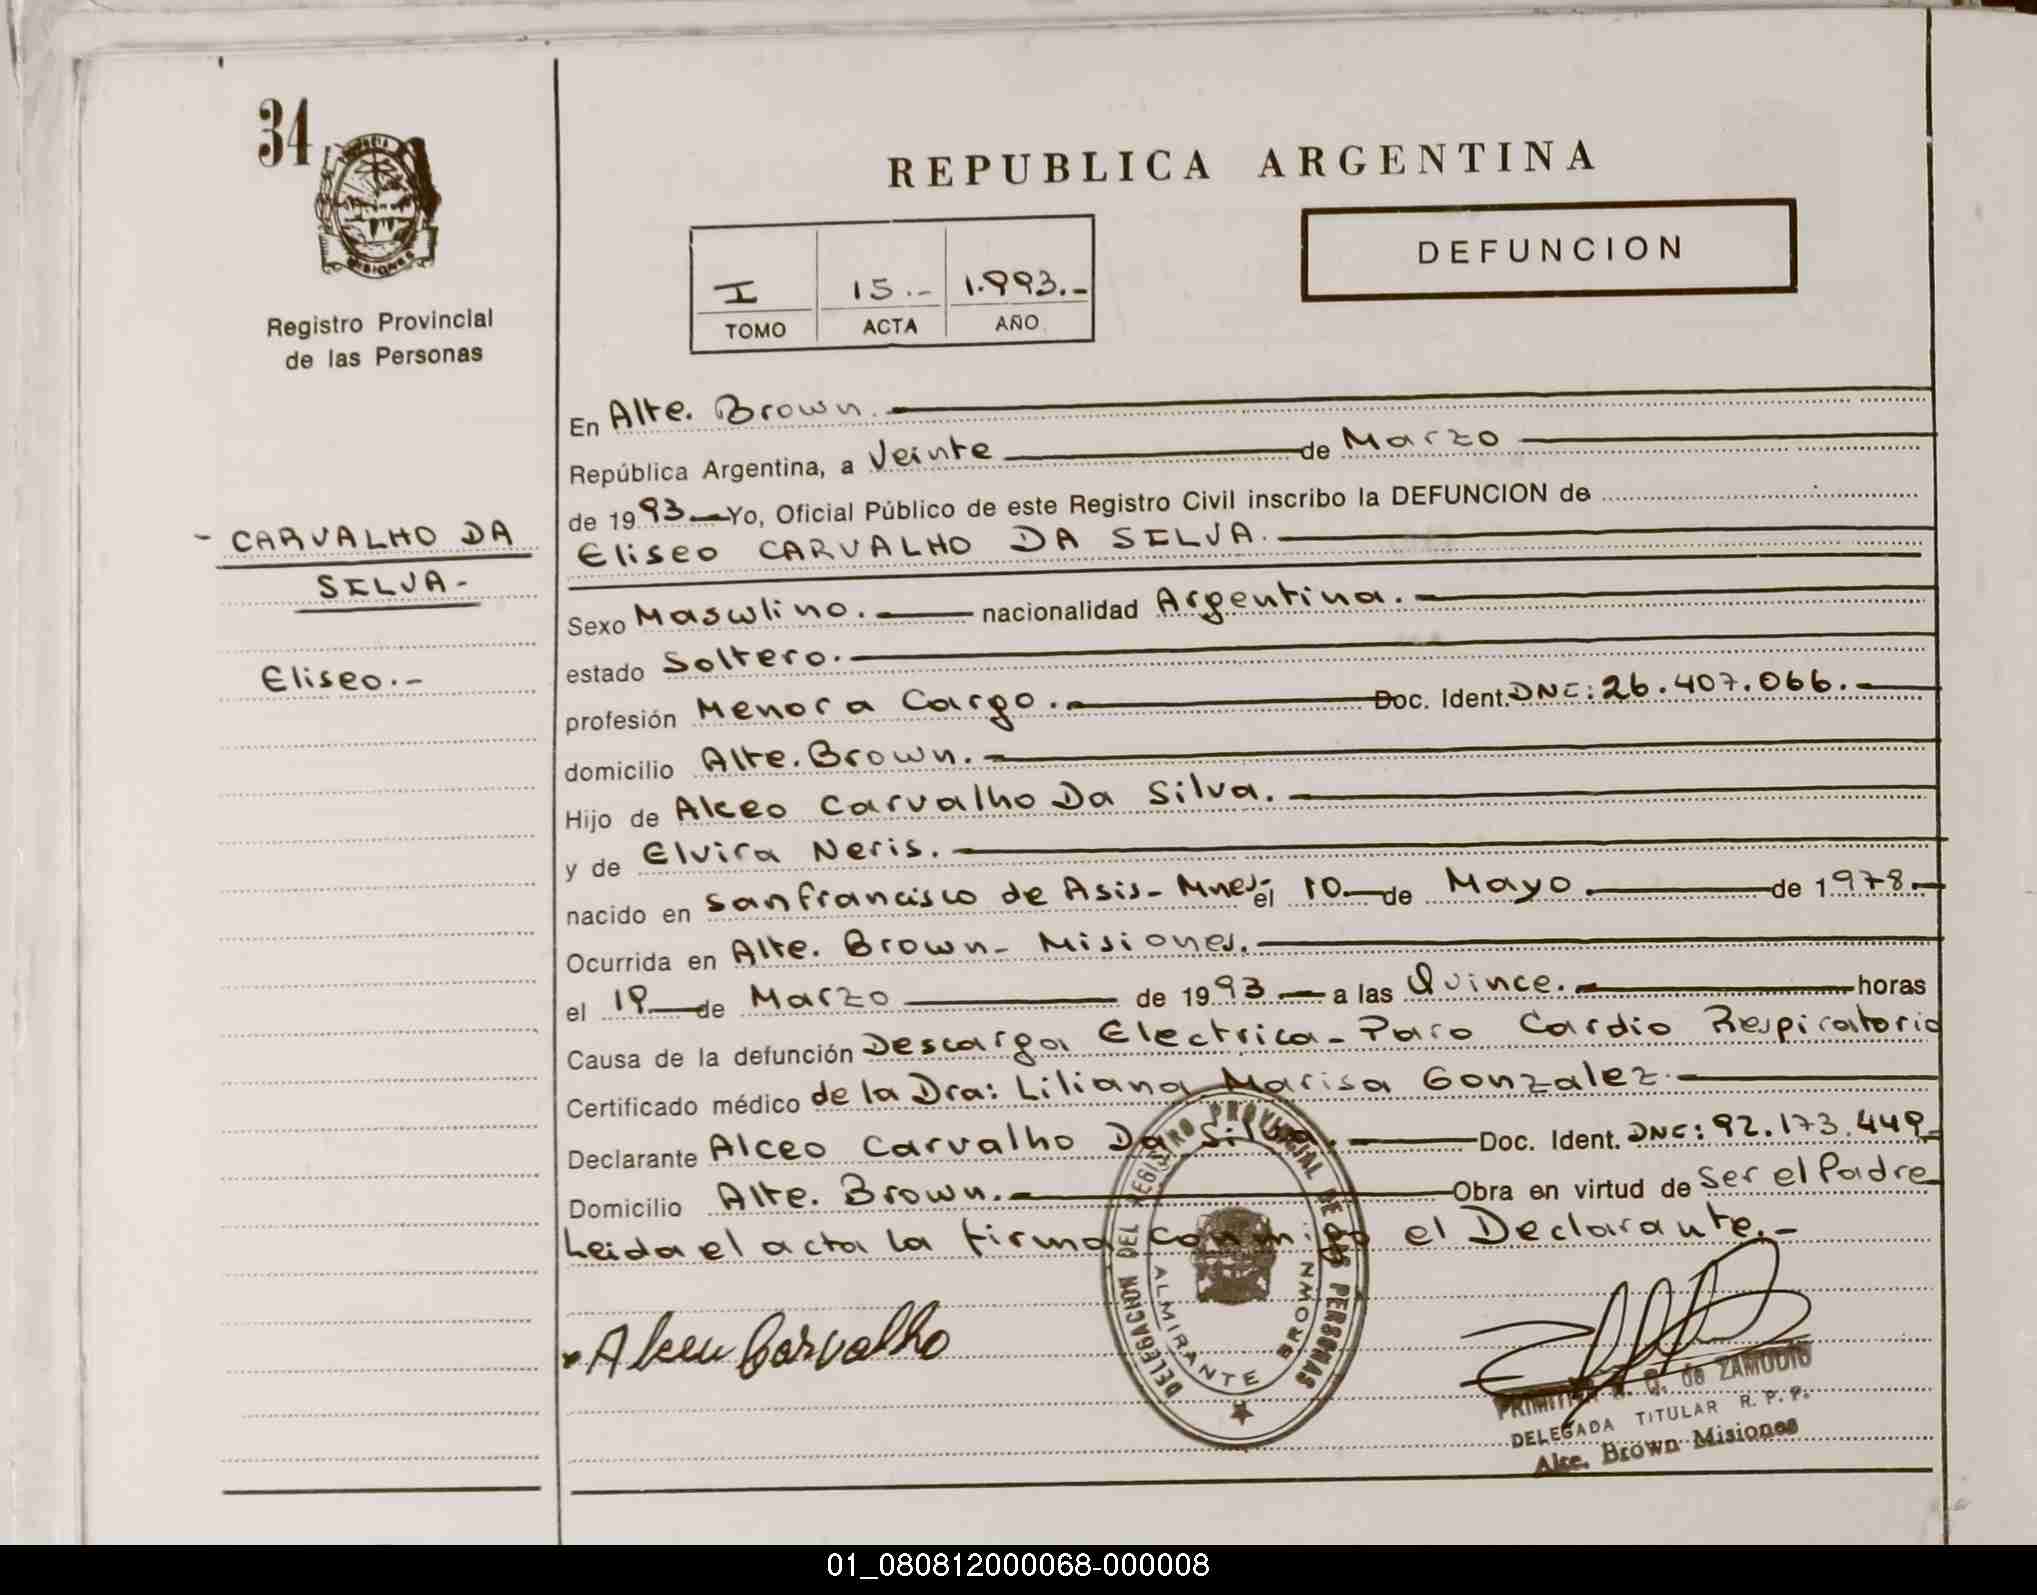 34
MISIONES
Registro Provincial
de las Personas
- CARVALHO DA
SILVA-
Eliseo.-
REPUBLICA ARGENTINA
DEFUNCION
I 15.- 1.993.-
TOMO ACTA AÑO
En Alte. Brown.
República Argentina, a Veinte de Marzo
de 1993 Yo, Oficial Público de este Registro Civil inscribo la DEFUNCION de
Eliseo CARVALHO DA SILVA.
Sexo Masculino. nacionalidad Argentina.
estado Soltero.
profesión Menor a Cargo. Doc. Ident. DNI: 26.407.066.
domicilio Alte. Brown.
Hijo de Alceo Carvalho Da Silva.
y de Elvira Neris.
nacido en San francisco de Asis- Mnes.- el 10 de Mayo de 1978.
Ocurrida en Alte. Brown- Misiones.
el 19 de Marzo de 1993 a las Quince. horas
Causa de la defunción Descarga Electrica- Paro Cardio Respiratorio
Certificado médico de la Dra: Liliana Marisa Gonzalez.
Declarante Alceo Carvalho Da Silva. Doc. Ident. DNI: 92.173.449-
Domicilio Alte. Brown. Obra en virtud de Ser el Padre
Leida el acta la firma conmigo el Declarante.-
DELEGACION DEL REGISTRO PROVINCIAL DE LAS PERSONAS
ALMIRANTE BROWN
Alceu Carvalho
de ZAMUDIO
DELEGADA TITULAR R.P.P.
Alte. Brown Misiones
01_080812000068-000008